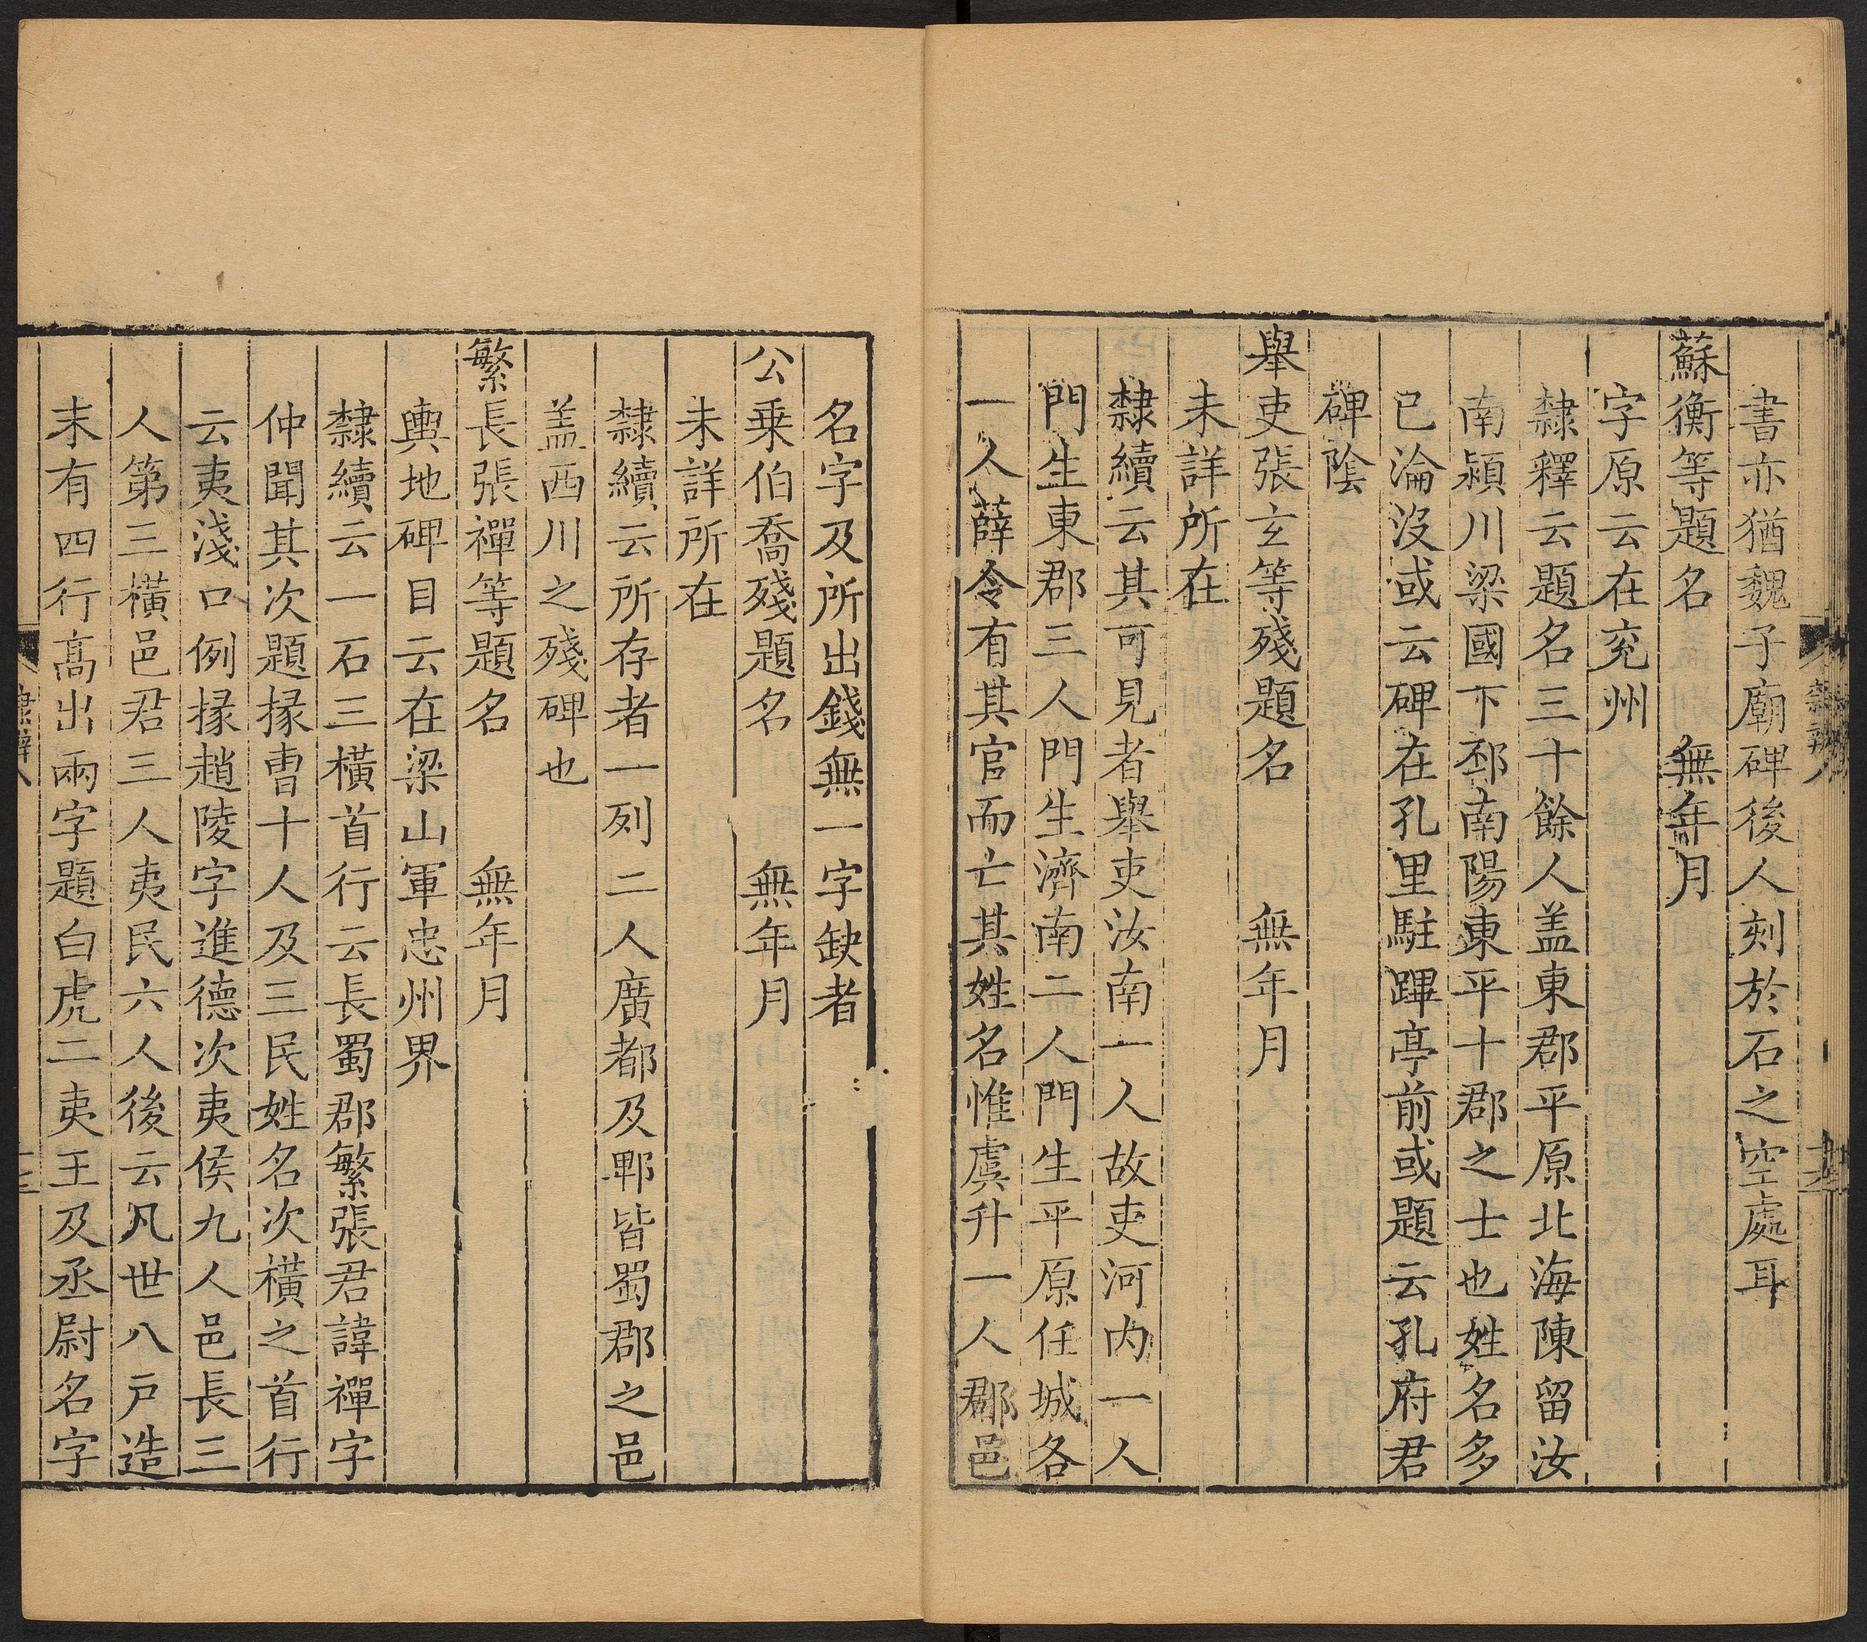 書亦猶魏子廟碑後人刻於石之空處耳
蘇衡等題名　無年月
字原云在兖州
隸釋云題名三十餘人盖東郡平原北海陳留汝
南潁川梁國下邳南陽東平十郡之士也姓名多
已淪沒或云碑在孔里駐蹕亭前或題云孔府君
碑陰
舉吏張玄等殘題名　無年月
未詳所在
隸續云其可見者舉吏汝南一人故吏河内一人
門生東郡三人門生濟南二人門生平原任城各
一人薛令有其官而亡其姓名惟虞升一人郡邑
名字及所出錢無一字缺者
公乗伯喬殘題名　無年月
未詳所在
隸續云所存者一列二人廣都及郫皆蜀郡之邑
盖西川之殘碑也
繁長張禪等題名　無年月
輿地碑目云在梁山軍忠州界
隸續云一石三橫首行云長蜀郡繁張君諱禪字
仲聞其次題掾曹十人及三民姓名次橫之首行
云夷淺口例掾趙陵字進德次夷侯九人邑長三
人第三橫邑君三人夷民六人後云凡世八戸造
末有四行髙出兩字題白虎二夷王及丞尉名字